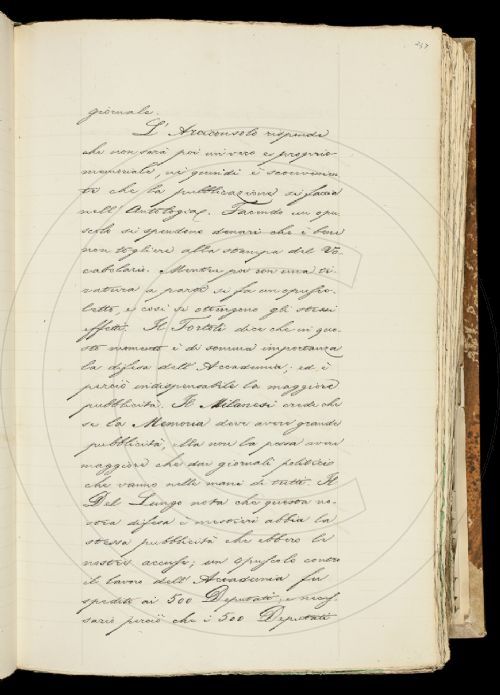 237
giornale.
L' Arciconsolo risponde
che non sarà poi un vero e proprio
memoriale, nè quindi è sconvenien
te che la pubblicazione si faccia
nell' Antologia. Facendo un opu
scolo si spendono denari che è bene
non togliere alla stampa del Vo-
cabolario. Mentre poi con una ti-
ratura a parte si fa un opusco-
letto, e così si ottengono gli stessi
effetti. Il Tortoli dice che in que-
sto momento è di somma importanza
la difesa dell' Accademia; ed è
perciò indispensabile la maggiore
pubblicità. Il Milanesi crede che
se la Memoria deve avere grande
pubblicità, ella non la possa avere
maggiore che dai giornali politici
che vanno nelle mani di tutti. Il
Del Lungo nota che questa no-
stra difesa è mestieri abbia la
stessa pubblicità che ebbero le
nostre accuse; un opuscolo contro
il lavoro dell' Accademia fu
spedito ai 500 Deputati, è neces-
sario perciò che i 500 Deputati